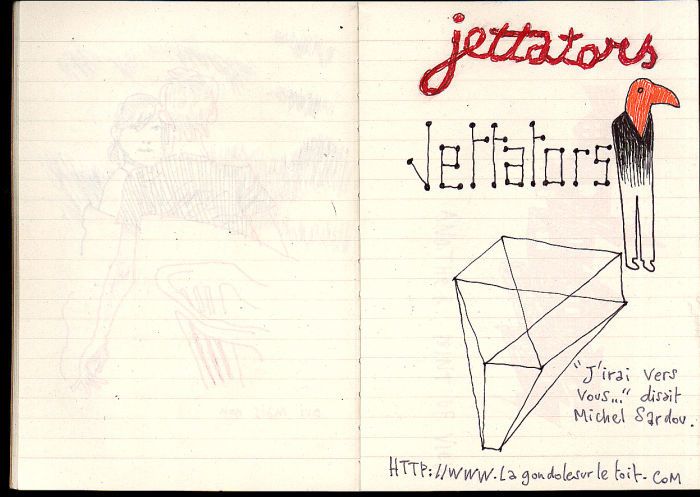 jettators
Jettators
"J'irai vers
vous..." disait
Michel Sardou.
HTTP://www.lagondolesurletoit.com